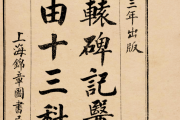 三年出版
轅碑記醫
由十三科
上海錦章圖書